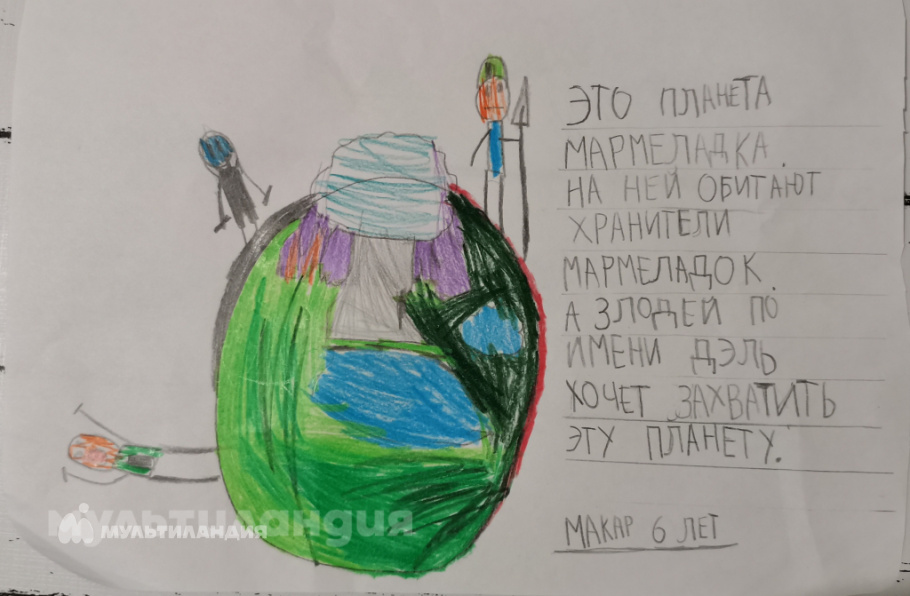 ЭТО ПЛАНЕТА
МАРМЕЛАДКА.
НА НЕЙ ОБИТАЮТ
ХРАНИТЕЛИ
МАРМЕЛАДОК.
А ЗЛОДЕЙ ПО
ИМЕНИ ДЭЛЬ
ХОЧЕТ ЗАХВАТИТЬ
ЭТУ ПЛАНЕТУ.
МАКАР 6 ЛЕТ
мультиландия
МУЛЬТИЛАНДИЯ